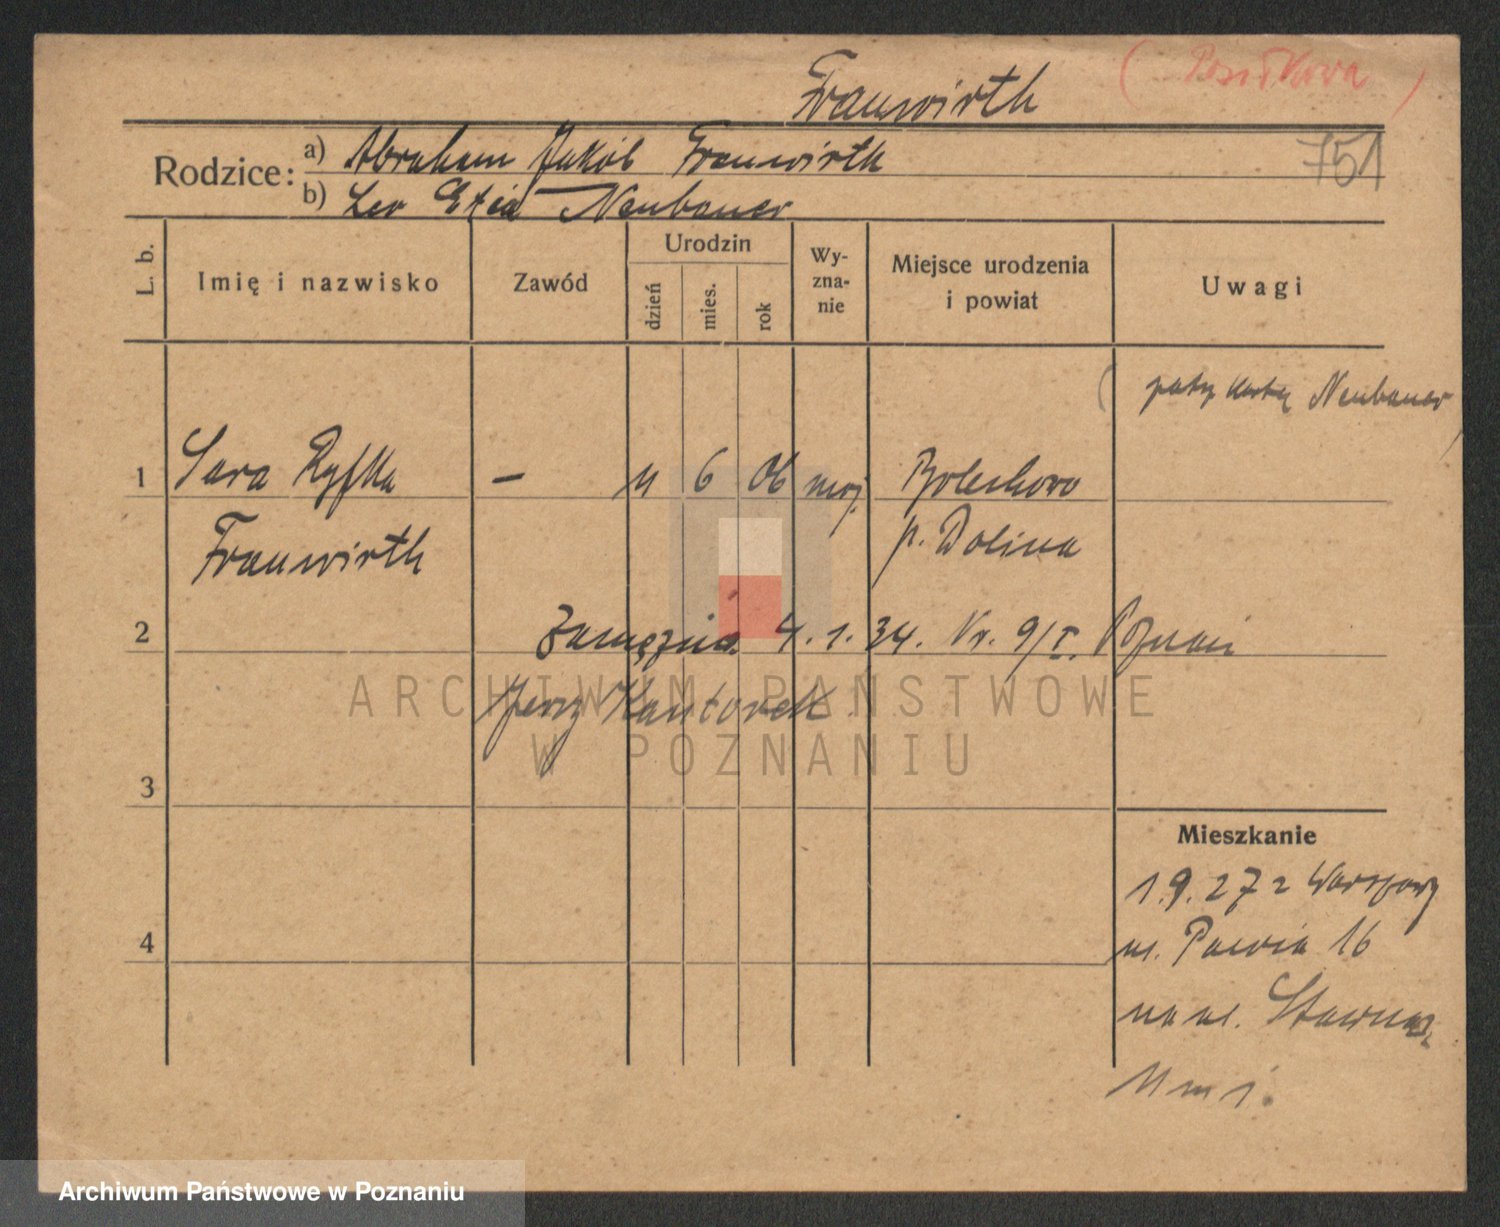 Frauwirth
751
Rodzice:
a) Abraham Jakób Frauwirth
b) Neubauer
L. b.
Imię i nazwisko
Zawód
Urodzin
dzień
mies.
rok
Wy-
zna-
nie
Miejsce urodzenia
i powiat
Uwagi
Neubauer
1 Sara Ryfka – 11 6 06 moj. Bolechowo
Frauwirth p. Dolina
2 Zamężna 4. 1. 34. Nr. 9/I. Poznań
Jerzy Kantorek
ARCHIWUM PAŃSTWOWE
W POZNANIU
3
Mieszkanie
1.9.27 z Warszawy
ul. Pawia 16
4
na ul.
11 m 1.
Archiwum Państwowe w Poznaniu